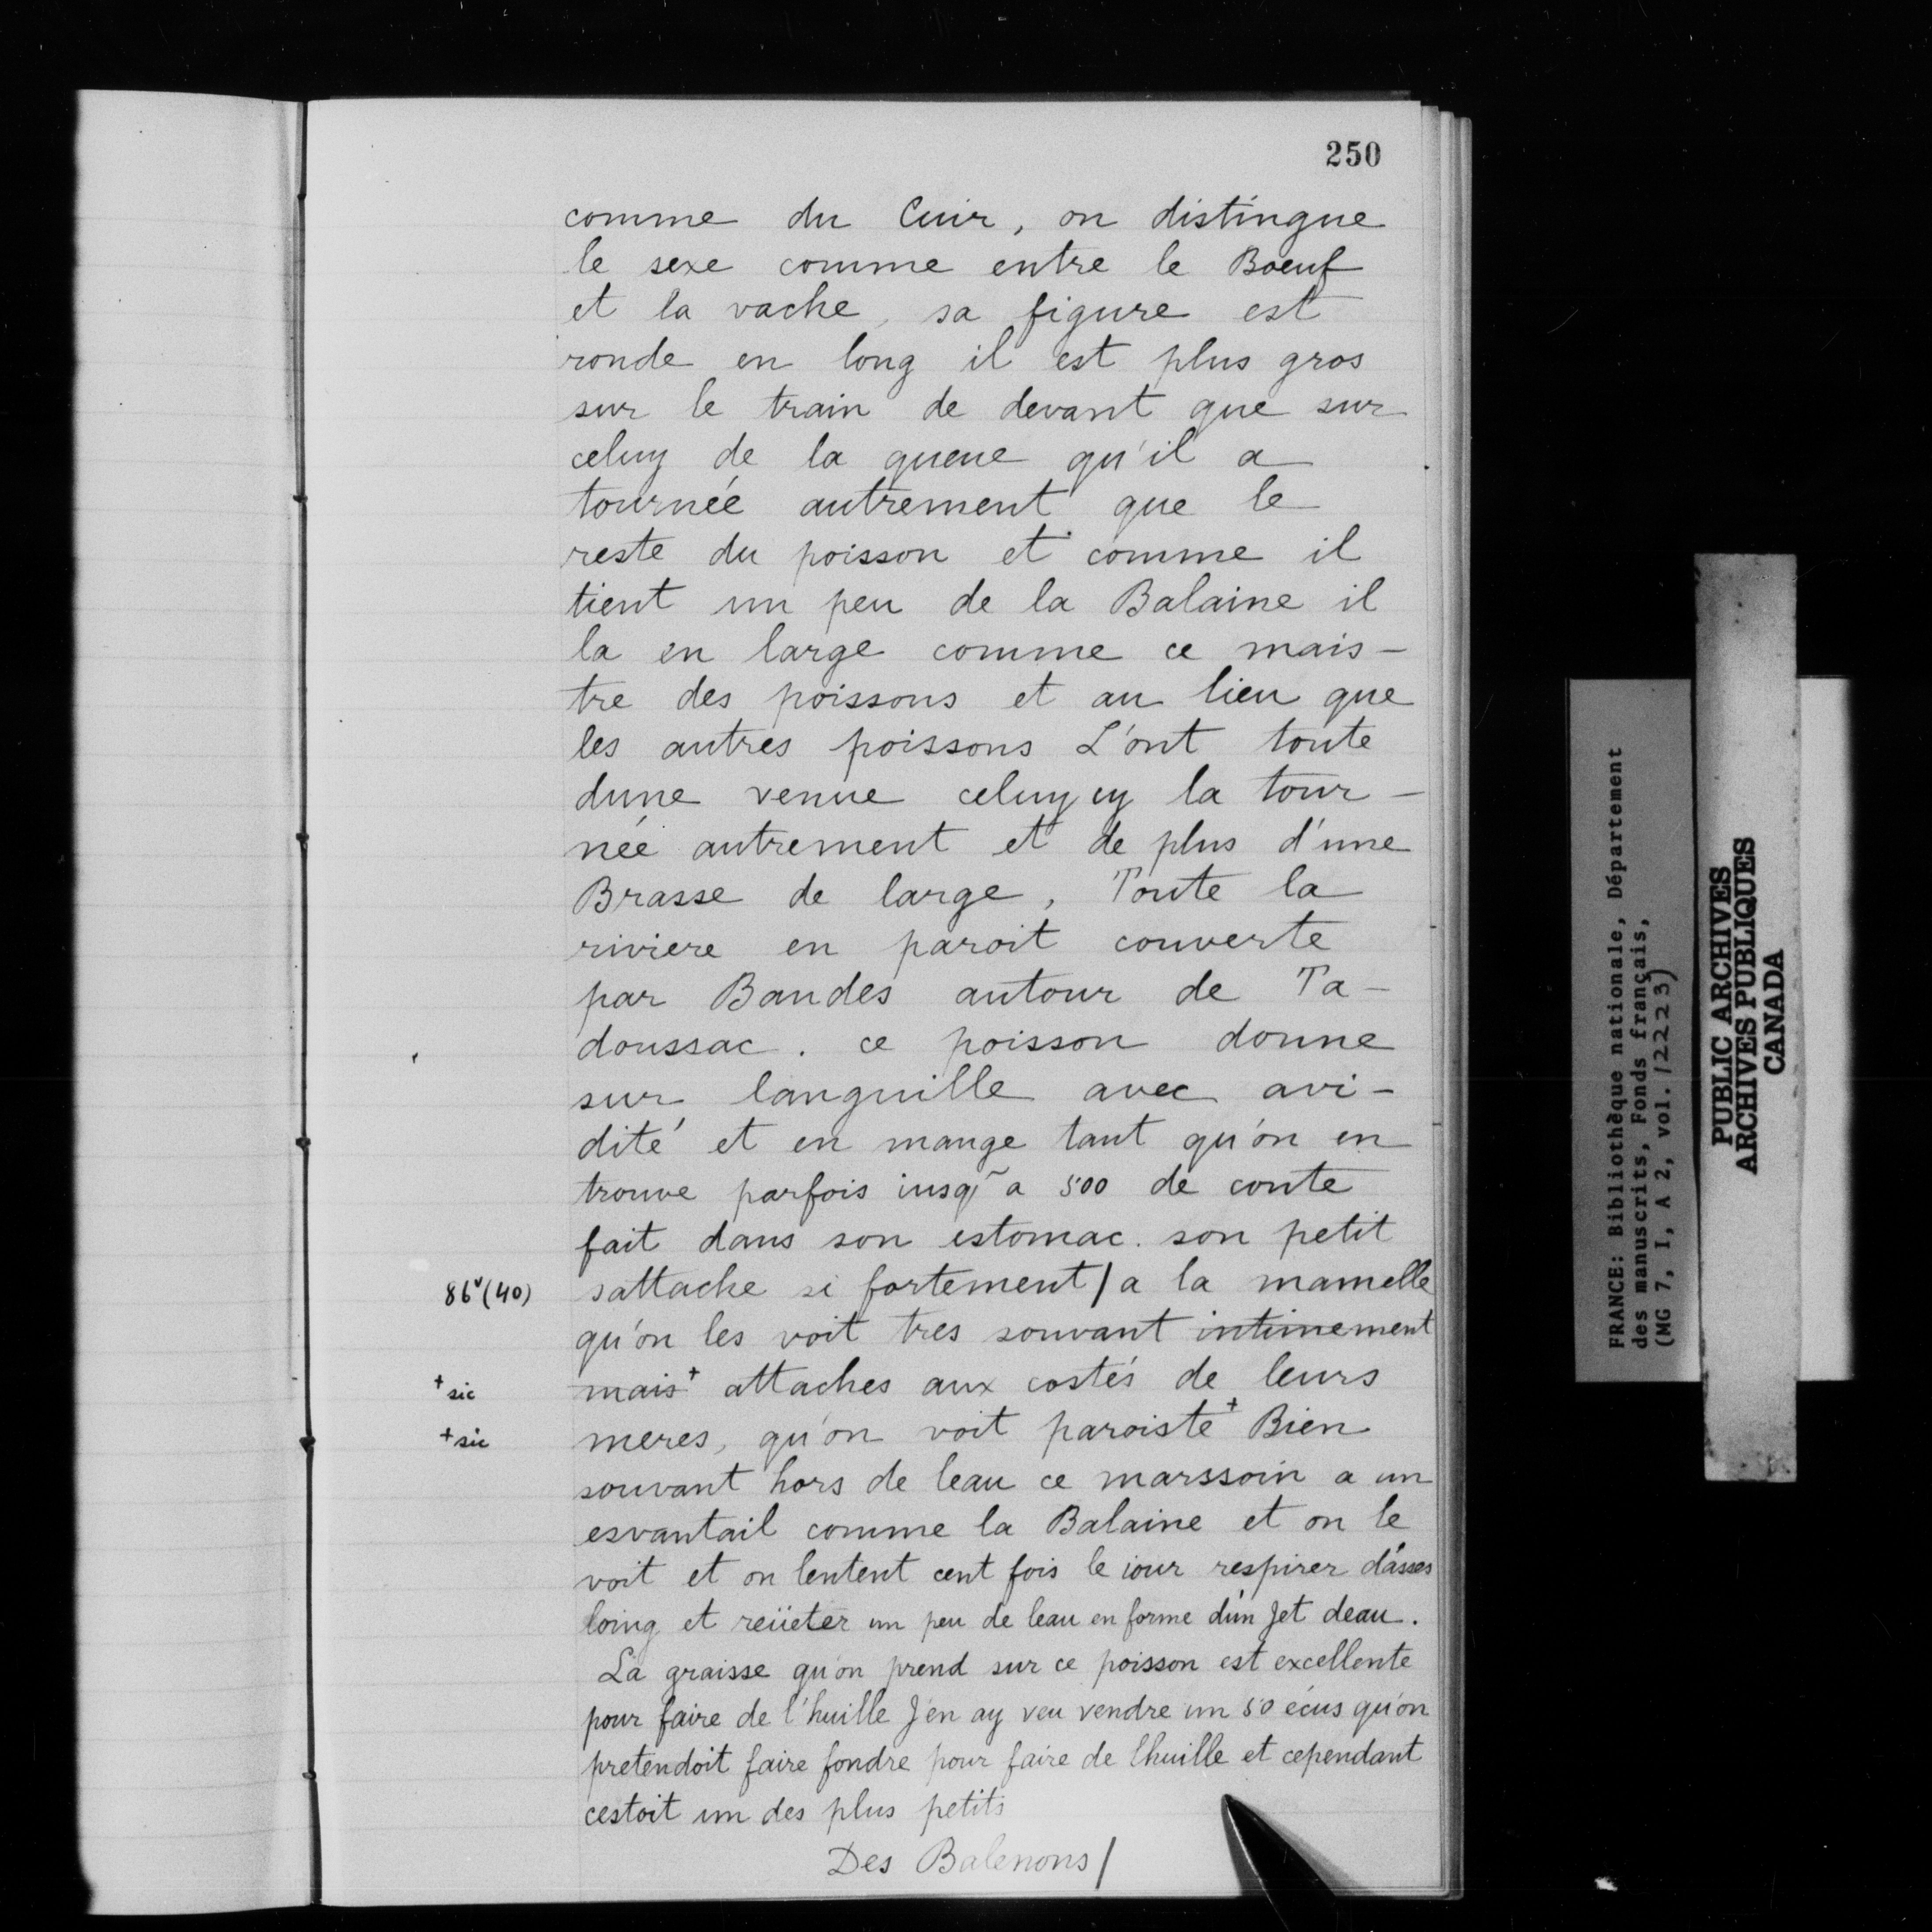 250
comme du Cuir, on distingue
le sexe comme entre le Boeuf
et la vache, sa figure est
ronde en long il est plus gros
sur le train de devant que sur
celuy de la queue qu'il a
tournée autrement que le
reste du poisson et comme il
tient un peu de la Balaine il
la en large comme ce mais-
tre des poissons et au lieu que
les autres poissons L'ont toute
dune venue celuycy la tour-
née autrement et de plus d'une
Brasse de large, Toute la
riviere en paroit couverte
par Bandes autour de Ta-
doussac. ce poisson donne
sur languille avec avi-
dité et en mange tant qu'on en
trouve parfois iusq̃ a 500 de conte
fait dans son estomac. son petit
86v(40) sattache si fortement/a la mamelle
qu'on les voit tres souvant intimement
+sic mais+ attaches aux costés de leurs
+sic meres, qu'on voit paroiste+ Bien
souvant hors de leau ce marssoin a un
esvantail comme la Balaine et on le
voit et on lentent cent fois le iour respirer d'asses
loing et reiieter un peu de leau en forme d'un Jet deau.
La graisse qu'on prend sur ce poisson est excellente
pour faire de l'huille J'en ay veu vendre un 50 écus qu'on
pretendoit faire fondre pour faire de lhuille et cependant
cestoit un des plus petits
Des Balenons/
FRANCE: Bibliothèque nationale, Département
des manuscrits, Fonds français,
(MG 7, I, A 2, vol. 12223)
PUBLIC ARCHIVES
ARCHIVES PUBLIQUES
CANADA